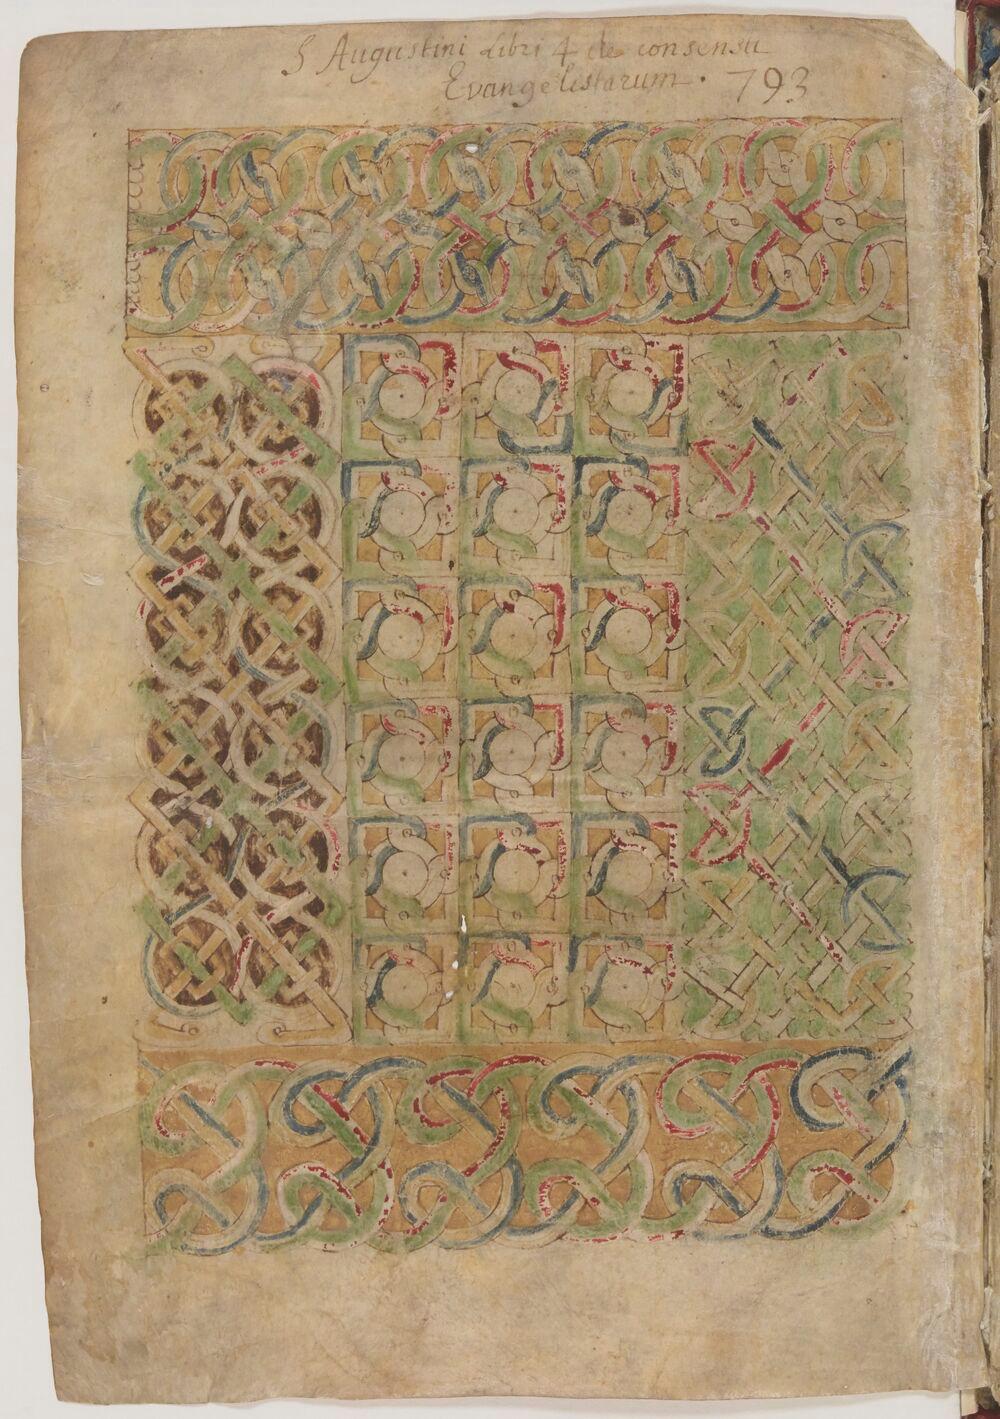 S Augustini Libri 4 de consensu
Evangelistarum. 793